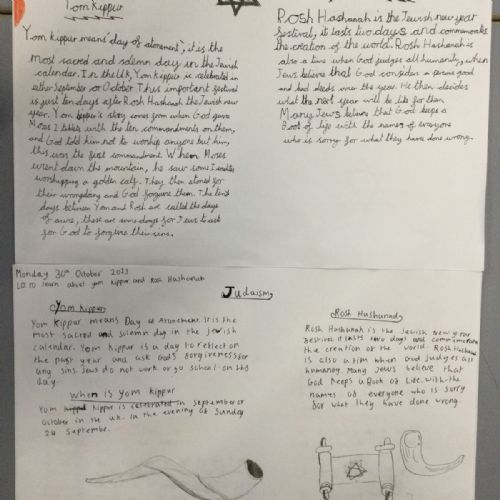 Yom Kippur
Yom kippur means 'day of atonement', it is the
most sacred and solemn day in the Jewish
calendar. In the UK Yom Kippur is celebrated in
either September or October. This important festival
is just ten days after Rosh Hashanah the Jewish new
year. Yom kippur's story comes from when God gave
Moses 2 tablets with the ten commandments on them,
and God told him not to worship anyone but him,
this was the first commandment. When Moses
went down the mountain, he saw some
worshipping a golden calf. They then atoned for
their wrongdoing and God forgave them. The ten
days between Yom and Rosh are called the days
of awe, these are some days for Jews to ask
for God to forgive their sins.
Rosh Hashanah is the Jewish new year
festival, it lasts two days and commemorates
the creation of the world. Rosh Hashanah is
also a time when God judges all humanity, when
Jews believe that God considers a persons good
and bad deeds over the year. He then decides
what the next year will be like for them
Many Jews believe that God keeps a
Book of life with the names of everyone
who is sorry for what they have done wrong.
Monday 30th October 2023
L.O. to learn about yom kippur and Rosh Hashanah
Judaism
Yom Kippur
Yom Kippur means Day of Atonement. It is the
most sacred and solemn day in the Jewish
calendar. Yom Kippur is a day to reflect on
the past year and ask God's forgiveness for
any sins. Jews do not work or go school on this
day.
When is Yom Kippur
Yom Kippur is celebrated in September or
October in the uk. in the evening of Sunday
24 September.
Rosh Hashanah
Rosh Hashanah is the Jewish New Year
festival it lasts two days and commemorates
the creation of the world. Rosh Hashanah
is also a time when God judges all
humanity. Many Jews believe that
God keeps a Book of Life with the
names of everyone who is sorry
for what they have done wrong.